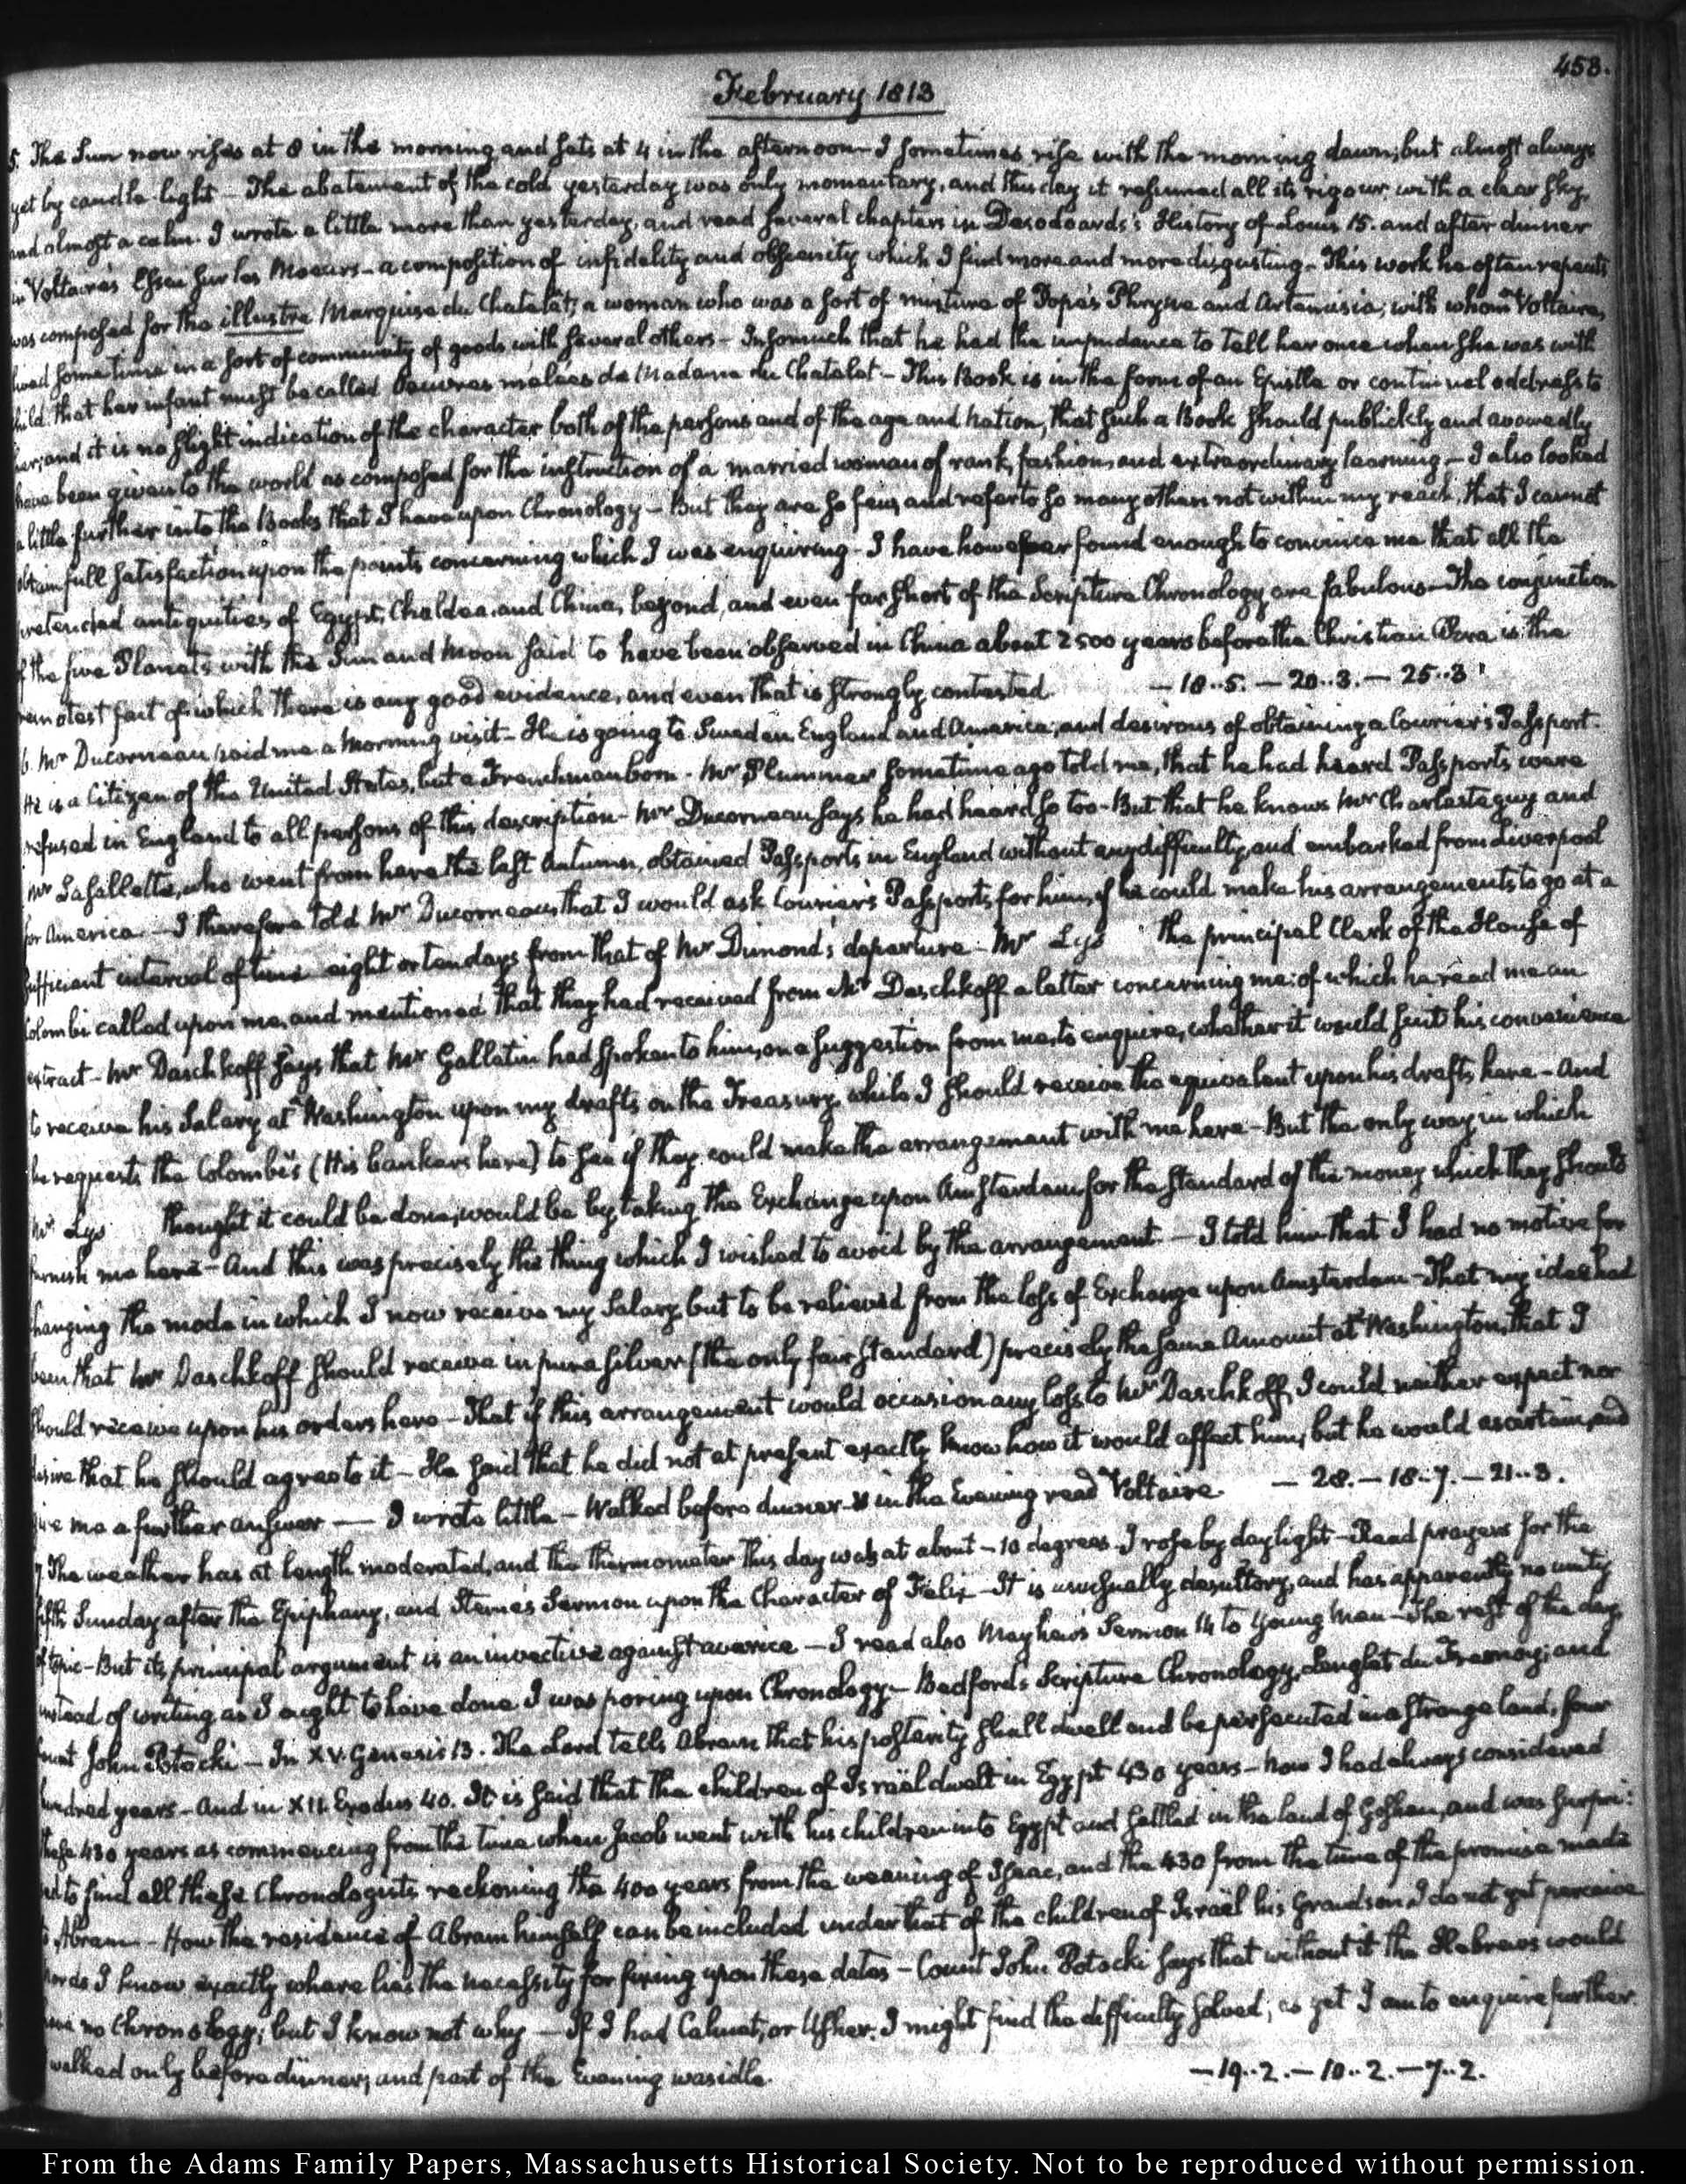 453.
February 1813
5. The Sun now rises at 8 in the morning, and sets at 4 in the afternoon — I sometimes rise with the morning dawn; but almost always
yet by candle-light — The abatement of the cold yesterday was only momentary, and this day it resumed all its rigour with a clear sky,
and almost a calm. I wrote a little more than yesterday, and read several chapters in Desodoards's History of Louis 15. and after dinner
in Voltaire's Essai sur les Moeurs — a composition of infidelity and obscenity which I find more and more disgusting — This work he often repeats
was composed for the illustre Marquise du Chatelet; a woman who was a sort of mixture of Pope's Phryne and Artemisia; with whom Voltaire,
lived sometime in a sort of community of goods with several others — Insomuch that he had the impudence to tell her once when she was with
child that her infant must be called Oeuvres mêlées de Madame du Chatelet — This Book is in the form of an Epistle or continual address to
her; and it is no slight indication of the character both of the persons and of the age and Nation, that such a Book should publickly and avowedly
have been given to the world as composed for the instruction of a married woman of rank, fashion, and extraordinary learning — I also looked
a little further into the Books that I have upon Chronology — But they are so few, and refer to so many others not within my reach, that I cannot
obtain full satisfaction upon the points concerning which I was enquiring — I have however found enough to convince me that all the
pretended antiquities of Egypt, Chaldea, and China, beyond, and even far short of the Scripture Chronology are fabulous — The conjunction
of the five Planets with the Sun and Moon said to have been observed in China about 2500 years before the Christian Aera is the
remotest fact of which there is any good evidence, and even that is strongly contested. — 18..5. — 20..3. — 25..3
6. Mr. Ducorneau paid me a morning visit — He is going to Sweden, England and America; and desirous of obtaining a Courier's Passport.
He is a Citizen of the United States, but a Frenchman born — Mr Plummer sometime ago told me, that he had heard Passports were
refused in England to all persons of this description — Mr Ducorneau says he had heard so too — But that he knows Mr Charlesteguy and
Mr Lasallette, who went from here the last Autumn, obtained Passports in England without any difficulty, and embarked from Liverpool
for America — I therefore told Mr Ducorneau, that I would ask Courier's Passports for him, if he could make his arrangements to go at a
sufficient interval of time eight or ten days from that of Mr Dimond's departure — Mr Lys the principal Clerk of the House of
Colombi called upon me, and mentioned that they had received from Mr Daschkoff a letter concerning me: of which he read me an
extract — Mr Daschkoff says that Mr Gallatin had spoken to him, on a suggestion from me, to enquire, whether it would suit his convenience
to receive his Salary at Washington upon my drafts on the Treasury, while I should receive the equivalent upon his drafts here — And
he requests the Colombi's (His bankers here) to see if they could make the arrangement with me here — But the only way in which
Mr Lys thought it could be done, would be by taking the Exchange upon Amsterdam for the standard of the money which they should
furnish me here — And this was precisely the thing which I wished to avoid by the arrangement — I told him that I had no motive for
changing the mode in which I now receive my Salary, but to be relieved from the loss of Exchange upon Amsterdam — That my idea had
been that Mr Daschkoff should receive in pure silver (the only fair standard) precisely the same Amount at Washington, that I
should receive upon his orders here — That if this arrangement would occasion any loss to Mr Daschkoff, I could neither expect nor
desire that he should agree to it — He said that he did not at present exactly know how it would affect him, but he would ascertain, and
give me a further answer — I wrote little — Walked before dinner & in the Evening read Voltaire. — 28. — 18..7. — 21..3.
7. The weather has at length moderated, and the thermometer this day was at about — 10 degrees. I rose by daylight — Read prayers for the
fifth Sunday after the Epiphany, and Sterne's Sermon upon the Character of Felix — It is unusually desultory, and has apparently no unity
of topic — But its principal argument is an invective against avarice — I read also Mayhew's Sermon 14 to Young Men — The rest of the day,
instead of writing as I ought to have done I was poring upon Chronology — Bedford's Scripture Chronology, Lenglet du Fresnoy; and
Count John Potocki — In XV. Genesis 13. The Lord tells Abram that his posterity shall dwell and be persecuted in a strange land, four
hundred years — And in XII. Exodus 40. It is said that the children of Israël dwelt in Egypt 430 years — Now I had always considered
these 430 years as commencing from the time when Jacob went with his children into Egypt and settled in the land of Goshen, and was surpri:
sed to find all these Chronologists reckoning the 400 years from the weaning of Isaac, and the 430 from the time of the promise made
to Abram — How the residence of Abram himself can be included under that of the children of Israël his Grandson I do not yet perceive
nor do I know exactly where lies the necessity for fixing upon these dates — Count John Potocki says that without it the Hebrews would
have no Chronology; but I know not why — If I had Calmet, or Usher, I might find the difficulty solved; as yet I am to enquire further.
walked only before dinner; and part of the Evening was idle. — 19..2. — 10..2. — 7..2.
From the Adams Family Papers, Massachusetts Historical Society. Not to be reproduced without permission.